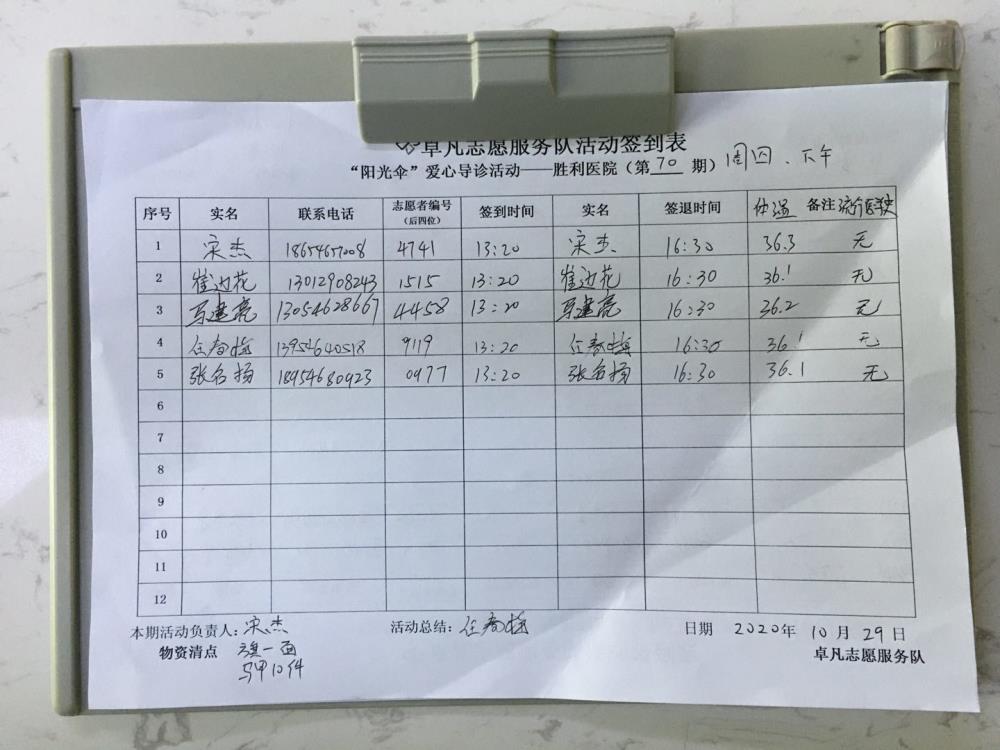 卓凡志愿服务队活动签到表
“阳光伞”爱心导诊活动——胜利医院（第70期）周四、下午
序号 实名 联系电话 志愿者编号（后四位） 签到时间 实名 签退时间 体温 备注 流行医学史
1 宋杰 18654657008 4741 13:20 宋杰 16:30 36.3 无
2 崔边花 13012908243 1515 13:20 崔边花 16:30 36.1 无
3 马建亮 13054628667 4458 13:20 马建亮 16:30 36.2 无
4 任春梅 13954640518 9119 13:20 任春梅 16:30 36.1 无
5 张名扬 18954680923 0977 13:20 张名扬 16:30 36.1 无
6
7
8
9
10
11
12
本期活动负责人：宋杰 活动总结：任春梅 日期 2020年10月29日
物资清点 旗一面 卓凡志愿服务队
马甲10件